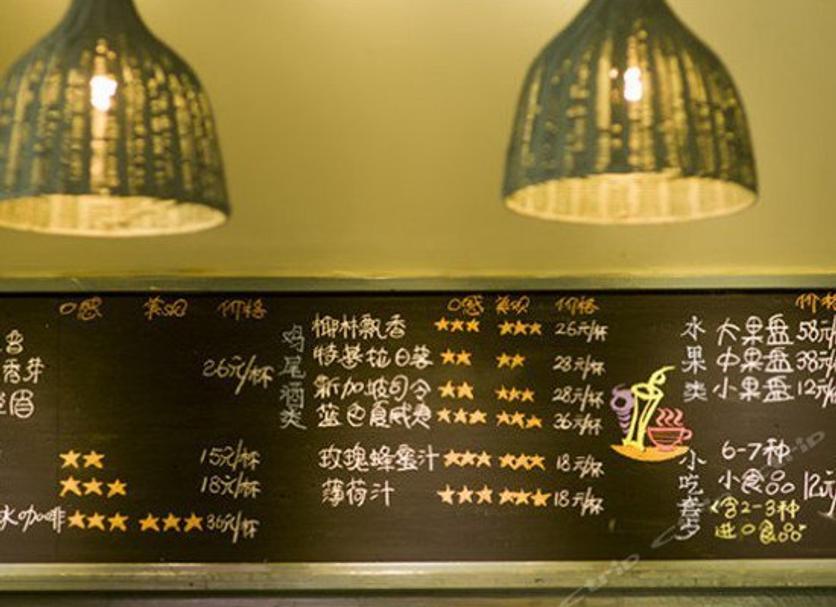 口感 美观 价格
26元/杯
15元/杯
18元/杯
冰咖啡 36元/杯
鸡尾酒类
口感 美观 价格
椰林飘香 26元/杯
特基拉日落 28元/杯
新加坡司令 28元/杯
蓝色夏威夷 36元/杯
玫瑰蜂蜜汁 18元/杯
薄荷汁 18元/杯
价格
水果类
大果盘 58元/
中果盘 38元/
小果盘 12元/
小吃套
6-7种
小食品 12元
含2-3种
进口食品